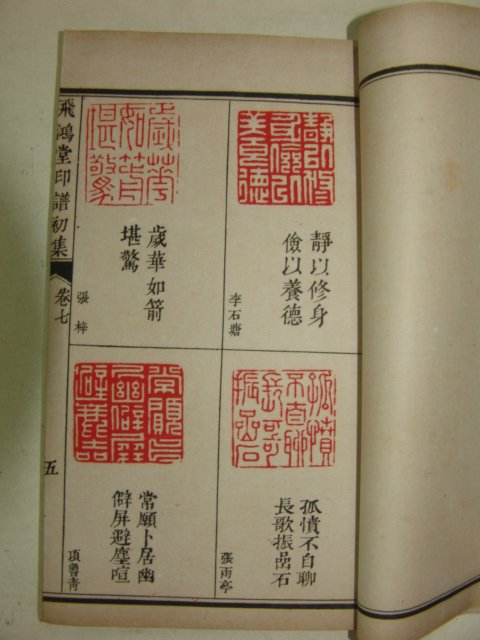 靜以修身
儉以養德
李石塘
孤憤不自聊
長歌振喦石
張雨亭
歲華如箭
堪驚
張梓
常願卜居幽
僻屏避塵喧
項魯青
飛鴻堂印譜初集
卷七
五